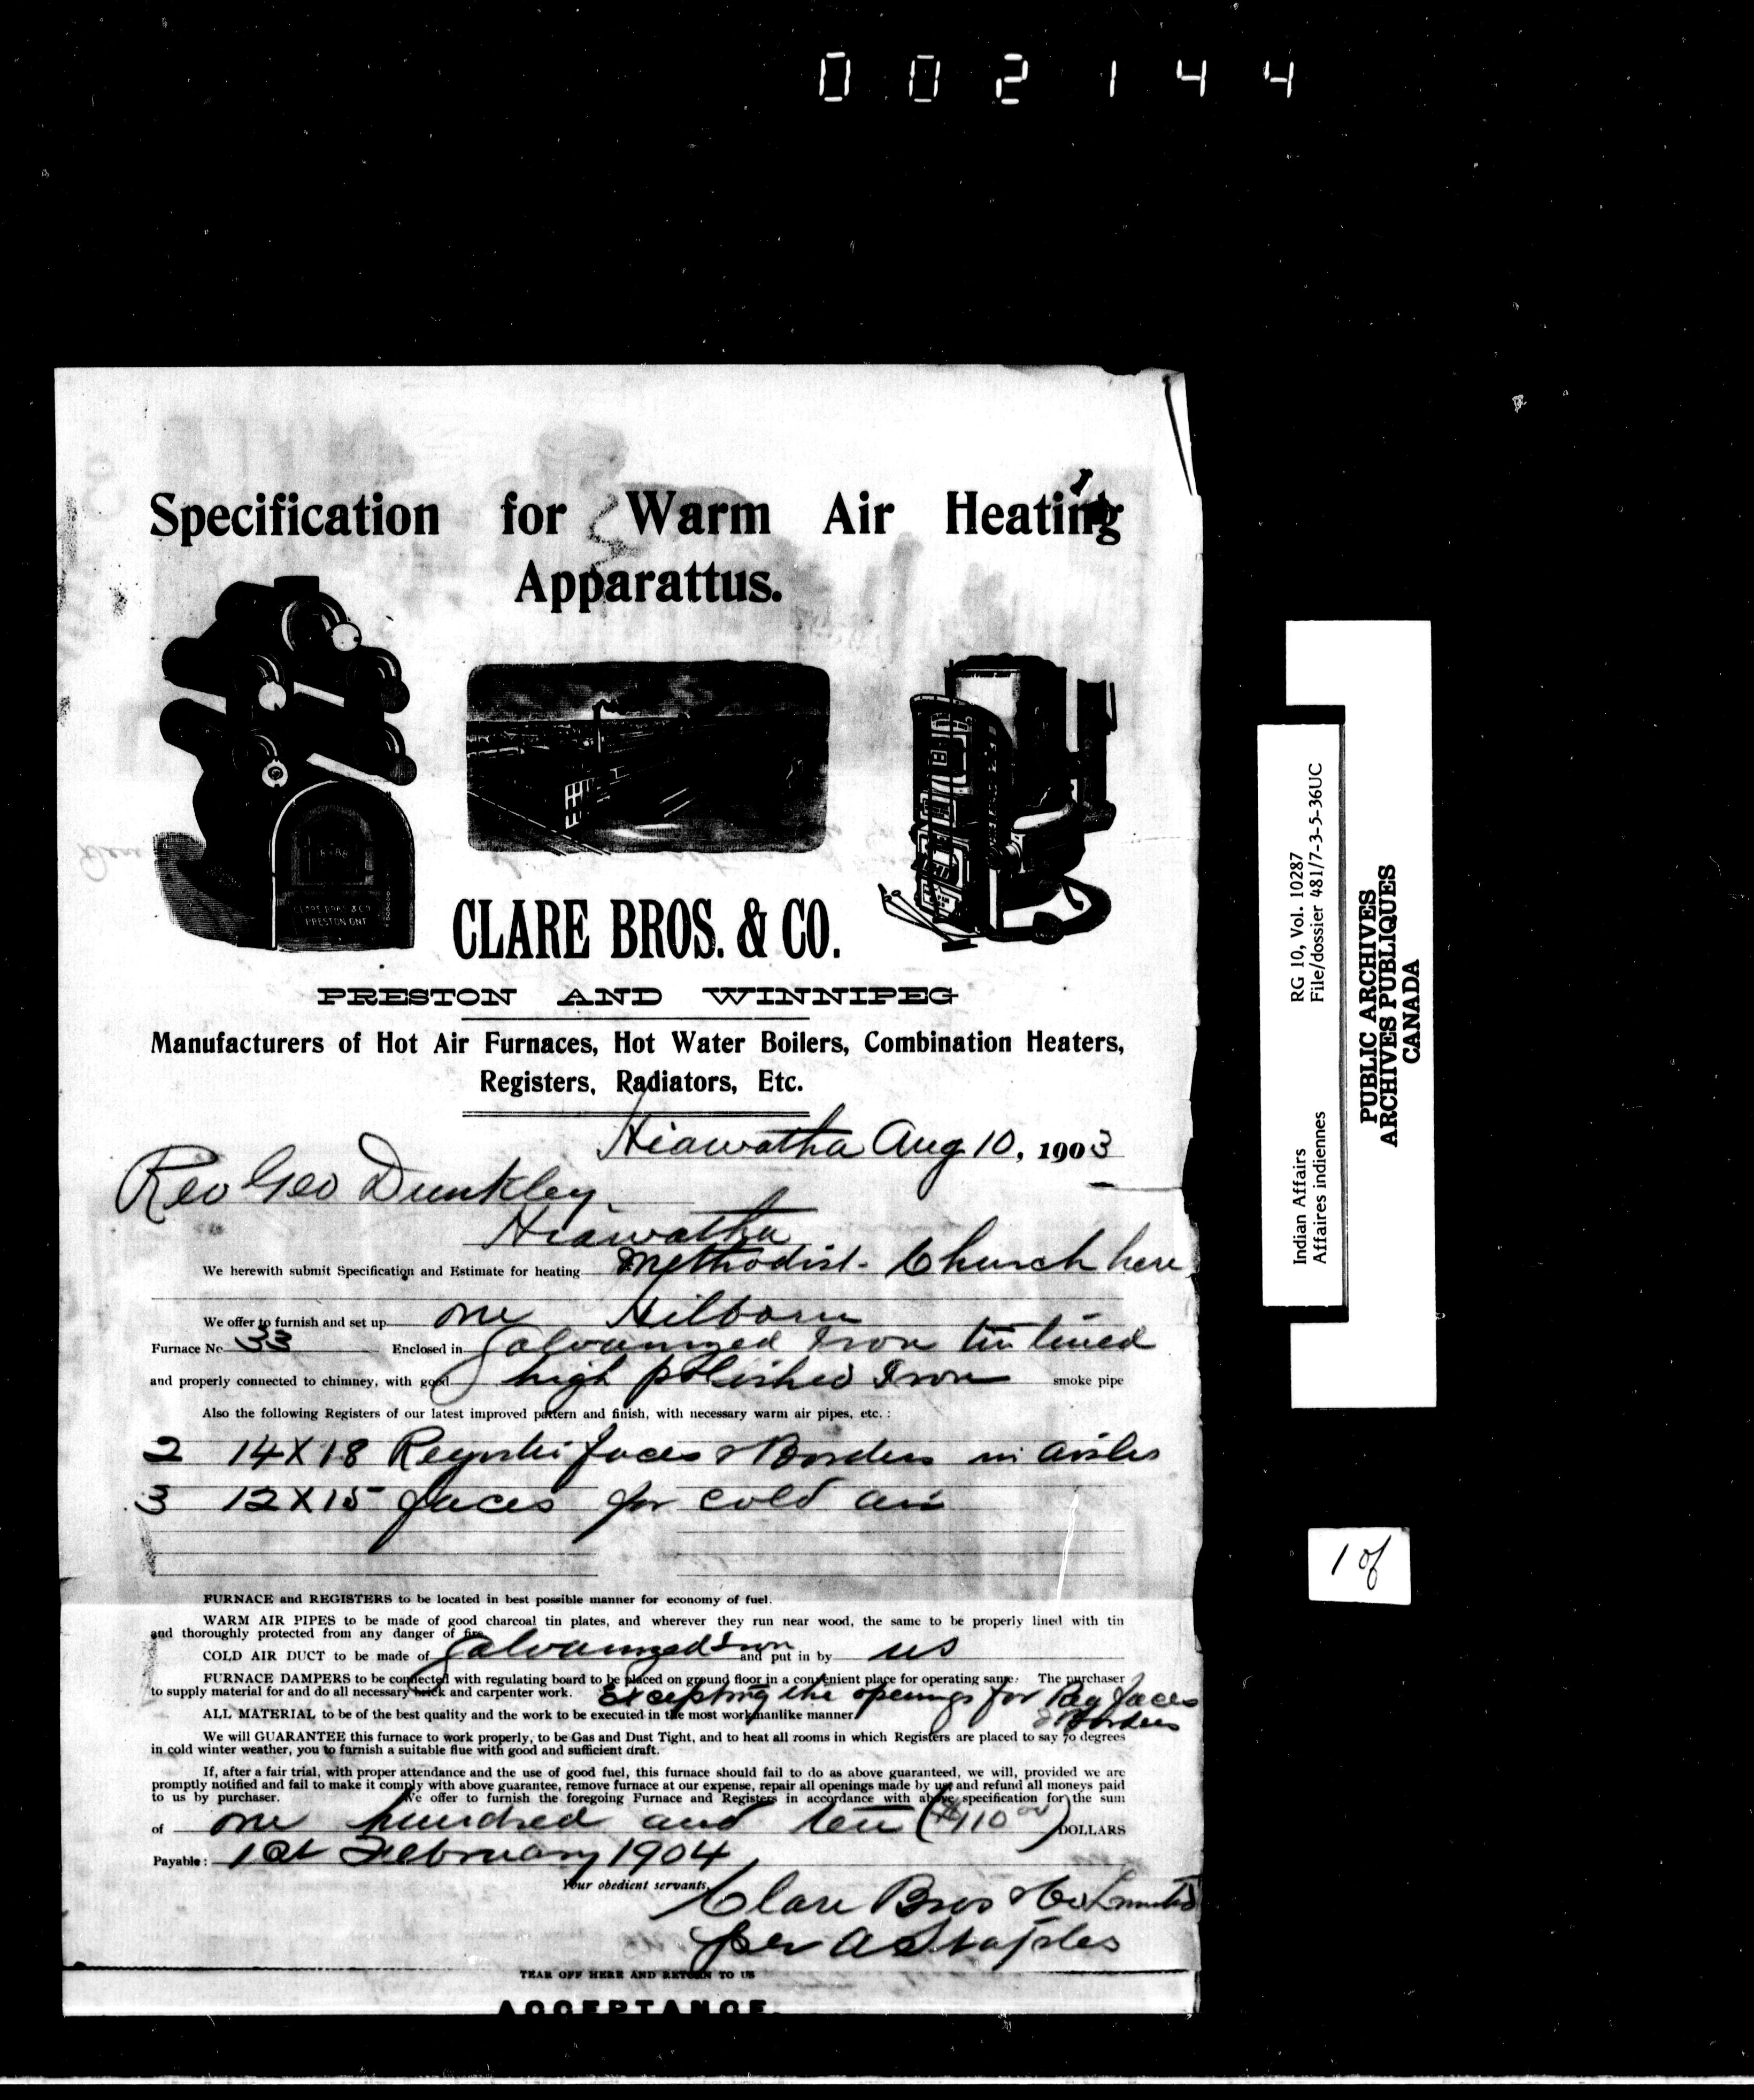 002144
Specification for Warm Air Heating
Apparattus.
CLARE BROS & CO
PRESTON ONT
CLARE BROS. & CO.
PRESTON AND WINNIPEG
Manufacturers of Hot Air Furnaces, Hot Water Boilers, Combination Heaters,
Registers, Radiators, Etc.
Hiawatha Aug 10, 1903
Rev Geo Dunkley
Hiawatha
We herewith submit Specification and Estimate for heating Methodist Church here
We offer to furnish and set up one Hilborn
Furnace No 33 Enclosed in Galvanized Iron tin lined
and properly connected to chimney, with good high polished Iron smoke pipe
Also the following Registers of our latest improved pattern and finish, with necessary warm air pipes, etc. :
2 14X18 Register faces & Borders in aisles
3 12X15 faces for cold air
FURNACE and REGISTERS to be located in best possible manner for economy of fuel.
WARM AIR PIPES to be made of good charcoal tin plates, and wherever they run near wood, the same to be properly lined with tin
and thoroughly protected from any danger of fire.
COLD AIR DUCT to be made of Galvanized Iron and put in by us
FURNACE DAMPERS to be connected with regulating board to be placed on ground floor in a convenient place for operating same. The purchaser
to supply material for and do all necessary brick and carpenter work. Excepting the openings for Reg faces
& Borders
ALL MATERIAL to be of the best quality and the work to be executed in the most workmanlike manner
We will GUARANTEE this furnace to work properly, to be Gas and Dust Tight, and to heat all rooms in which Registers are placed to say 70 degrees
in cold winter weather, you to furnish a suitable flue with good and sufficient draft.
If, after a fair trial, with proper attendance and the use of good fuel, this furnace should fail to do as above guaranteed, we will, provided we are
promptly notified and fail to make it comply with above guarantee, remove furnace at our expense, repair all openings made by us and refund all moneys paid
to us by purchaser. We offer to furnish the foregoing Furnace and Registers in accordance with above specification for the sum
of one hundred and ten ($110 00) DOLLARS
Payable: 1st February 1904
Your obedient servants,
Clare Bros & Co Limited
per A Staples
TEAR OFF HERE AND RETURN TO US
ACCEPTANCE.
Indian Affairs RG 10, Vol. 10287
Affaires indiennes File/dossier 481/7-3-5-36UC
PUBLIC ARCHIVES
ARCHIVES PUBLIQUES
CANADA
1 of